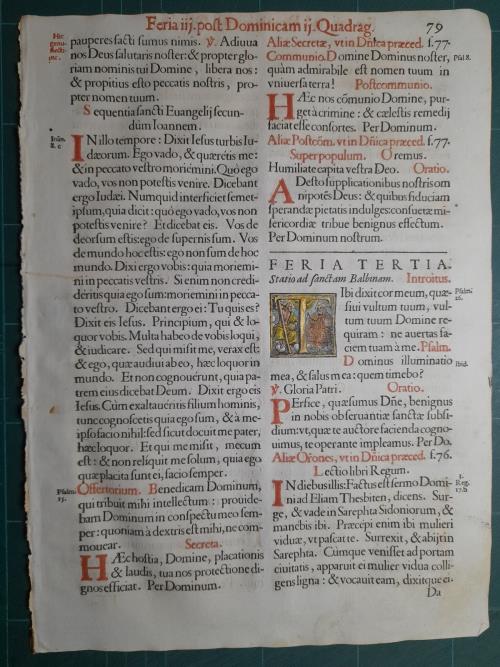 Feria iij. post Dominicam ij. Quadrag. 79
pauperes facti sumus nimis. ℣. Adiuua
nos Deus salutaris noster: & propter glo-
riam nominis tui Domine, libera nos:
& propitius esto peccatis nostris, pro-
pter nomen tuum.
Sequentia sancti Euangelij secun-
dùm Ioannem.
Ioan.
8. c
IN illo tempore: Dixit Iesus turbis Iu-
dæorum. Ego vado, & quæretis me:
& in peccato vestro moriemini. Quò ego
vado, vos non potestis venire. Dicebant
ergo Iudæi. Numquid interficiet semet-
ipsum, quia dicit: quò ego vado, vos non
potestis venire? Et dicebat eis. Vos de
deorsum estis: ego de supernis sum. Vos
de mundo hoc estis: ego non sum de hoc
mundo. Dixi ergo vobis: quia moriemi-
ni in peccatis vestris. Si enim non credi-
deritis quia ego sum: moriemini in pecca-
to vestro. Dicebant ergo ei: Tu quis es?
Dixit eis Iesus. Principium, qui & lo-
quor vobis. Multa habeo de vobis loqui,
& iudicare. Sed qui misit me, verax est:
& ego, quæ audiui ab eo, hæc loquor in
mundo. Et non cognouerunt, quia pa-
trem eius dicebat Deum. Dixit ergo eis
Iesus. Cùm exaltaueritis filium hominis,
tunc cognoscetis quia ego sum, & à me-
ipso facio nihil: sed sicut docuit me pater,
hæc loquor. Et qui me misit, mecum
est: & non reliquit me solum, quia ego
quæ placita sunt ei, facio semper.
Psalm.
15.
Offertorium. Benedicam Dominum,
qui tribuit mihi intellectum: prouide-
bam Dominum in conspectu meo sem-
per: quoniam à dextris est mihi, ne com-
mouear. Secreta.
HÆc hostia, Domine, placationis
& laudis, tua nos protectione di-
gnos efficiat. Per Dominum.
Aliæ Secretæ, vt in Dñica præced. f. 77.
Communio. Domine Dominus noster,
Psal 8.
quàm admirabile est nomen tuum in
vniuersa terra! Postcommunio.
HÆc nos cõmunio Domine, pur-
get à crimine: & cælestis remedij
faciat esse consortes. Per Dominum.
Aliæ Postcõm. vt in Dñica præced. f. 77.
Super populum. Oremus.
Humiliate capita vestra Deo. Oratio.
ADesto supplicationibus nostris om
nipotẽs Deus: & quibus fiduciam
sperandæ pietatis indulges: consuetæ mi-
sericordiæ tribue benignus effectum.
Per Dominum nostrum.
FERIA TERTIA.
Statio ad sanctam Balbinam. Introitus.
Psalm.
26.
TIbi dixit cor meum, quæ-
siui vultum tuum, vul-
tum tuum Domine re-
quiram: ne auertas fa-
ciem tuam à me. Psalm.
Ibid.
Dominus illuminatio
mea, & salus mea: quem timebo?
℣. Gloria Patri. Oratio.
PErfice, quæsumus Dñe, benignus
in nobis obseruantiæ sanctæ subsi-
dium: vt, quæ te auctore facienda cogno-
uimus, te operante impleamus. Per Do.
Aliæ Orões, vt in Dñica præced. f. 76.
Lectio libri Regum.
3.
Reg.
17. b
IN diebus illis: Factus est sermo Domi-
ni ad Eliam Thesbiten, dicens. Sur-
ge, & vade in Sarephta Sidoniorum, &
manebis ibi. Præcepi enim ibi mulieri
viduæ, vt pascat te. Surrexit, & abijt in
Sarephta. Cùmque venisset ad portam
ciuitatis, apparuit ei mulier vidua colli-
gens ligna: & vocauit eam, dixitque ei.
Da